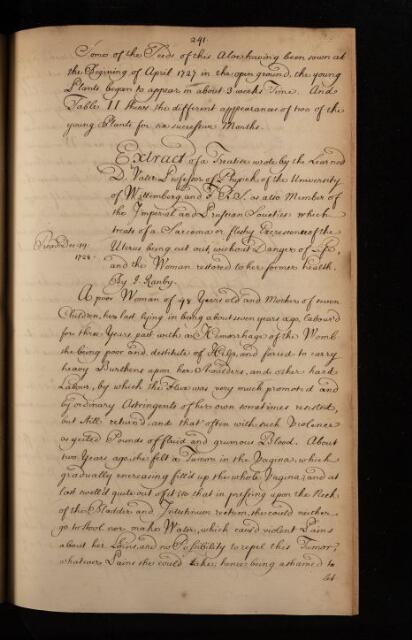 241.
Some of the Seeds of this Aloe having been sown at
the Begining of April 1727 in the open ground, the young
Plants began to appear in about 3 weeks Time. And
Table II shews the different appearances of two of the
young Plants for six successive Months.
Extract of a Treatise wrote by the Learned
D. Vater Professor of Physick of the University
of Wittemberg and F.R.S. as also Member of
the Imperial and Prussian Societies which
treats of a Sarcoma or fleshy Excresence of the
Read Dec. 19.
1728.
Uterus being cut out, without Danger of Life,
and the Woman restored to her former health.
By J. Ranby.
A poor Woman of 48 Years old and Mother of seven
Children, her last lying in being about seven years ago, labour'd
for three Years past with a Hemorrhage of the Womb
she being poor and destitute of Help, and forced to carry
heavy Burthens upon her Shoulders, and other hard
Labour, by which the Flux was very much promoted and
by ordinary Astringents of her own sometimes resisted,
but still return'd and that often with such Violence
as yeilded Pounds of fluid and grumous Blood. About
two Years ago she felt a Tumor in the Vagina, which
gradually encreasing fill'd up the whole Vagina, and at
last swell'd quite out of it, so that in pressing upon the Neck
of the Bladder and Intestinum rectum, she could neither
go to stool nor make Water, which caus'd violent Pains
about her Loins, and no Possibility to repel this Tumor,
whatever Pains she could take; hence being ashamed to